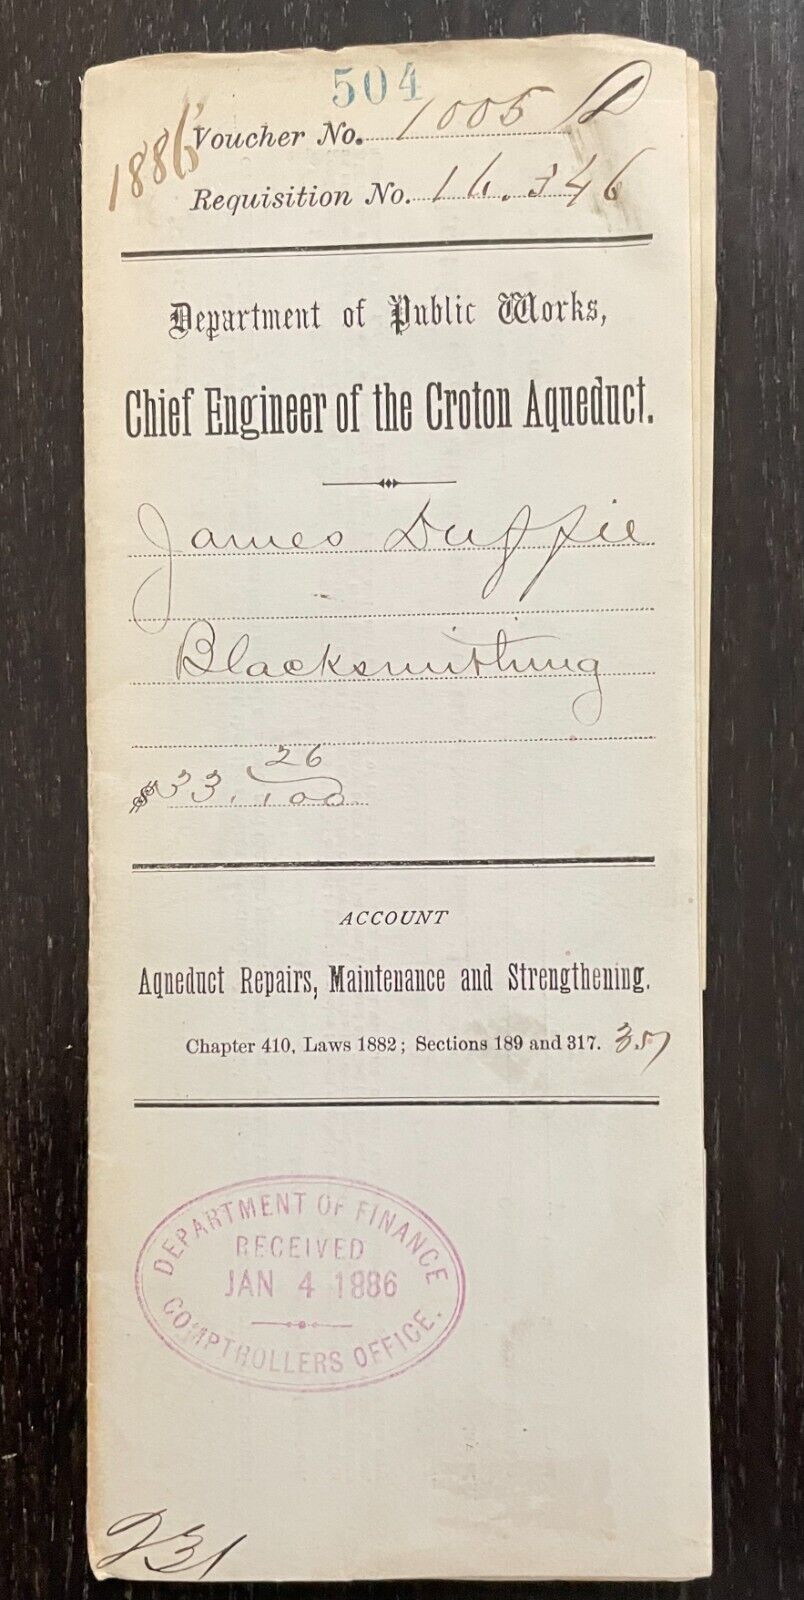 504
1886
Voucher No. 1005
Requisition No. 16.346
Department of Public Works,
Chief Engineer of the Croton Aqueduct.
James Duffie
Blacksmithing
$33. 26/100
ACCOUNT
Aqueduct Repairs, Maintenance and Strengthening.
Chapter 410, Laws 1882; Sections 189 and 317.
DEPARTMENT OF FINANCE
RECEIVED
JAN 4 1886
COMPTROLLERS OFFICE.
231